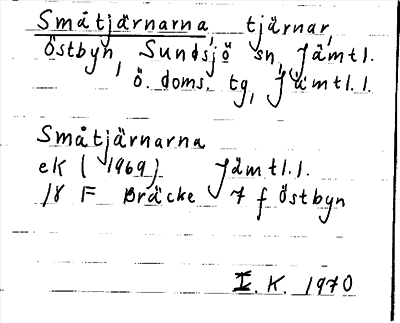 Småtjärnarna, tjärnar,
Östbyn, Sundsjö sn, Jämtl.
ö. doms. tg, Jämtl. l.
Småtjärnarna
eK (1969) Jämtl. l.
18 F Bräcke 7 f Östbyn
I. K. 1970